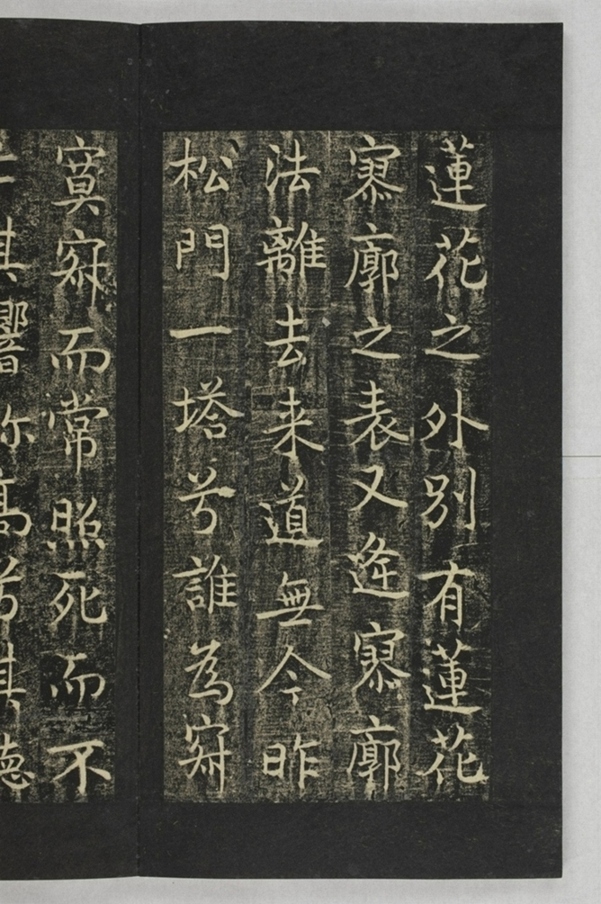 蓮花之外別有蓮花
寥廓之表又逢寥廓
法離去来道無今昨
松門一塔兮誰為寂
寞寂而常照死而不
其響弥高兮其徳